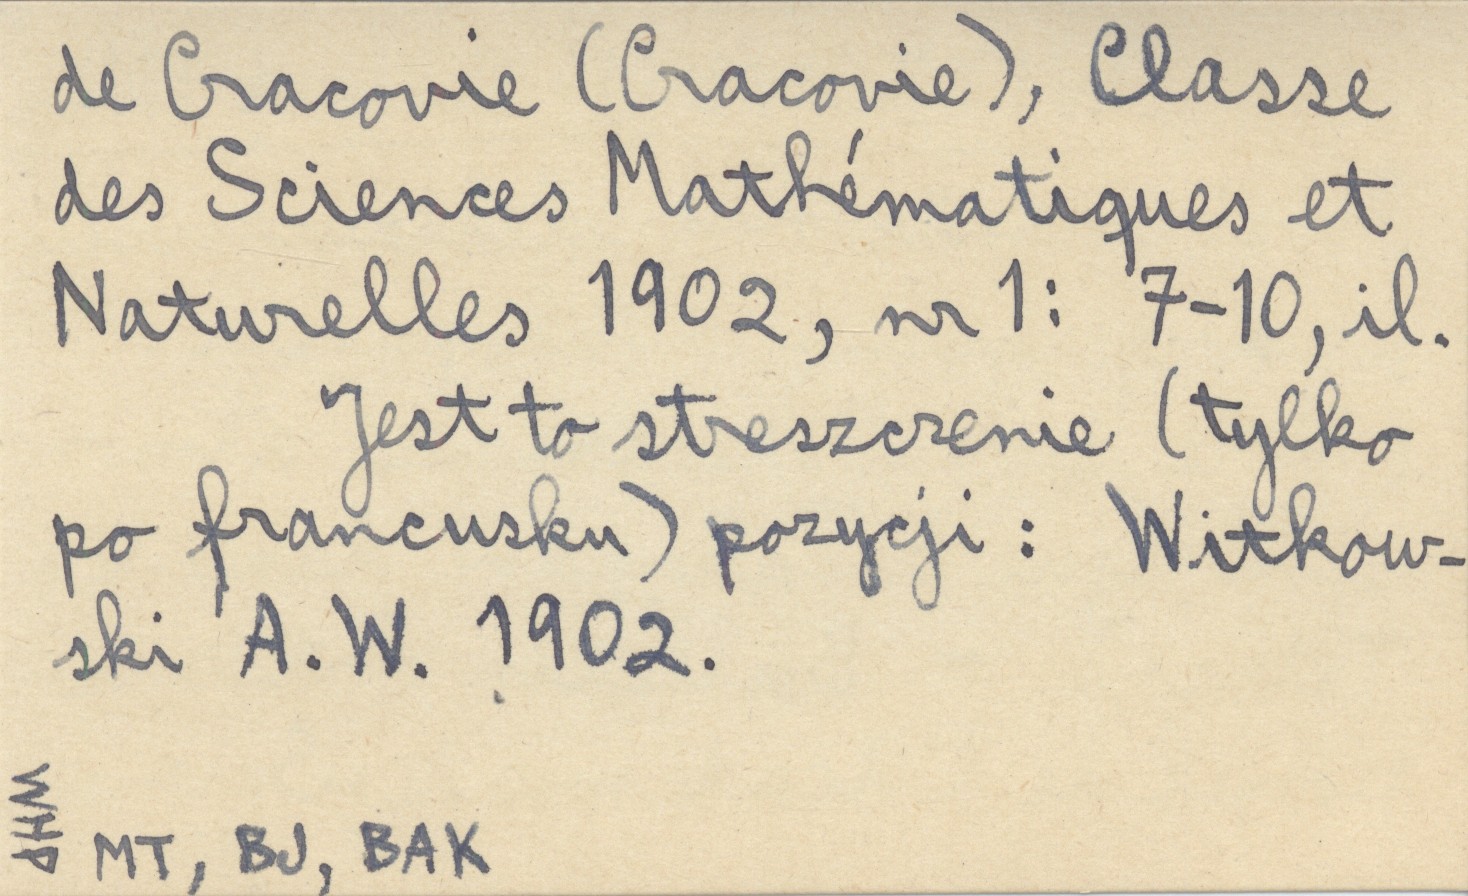 de Cracovie (Cracovie), Classe
des Sciences Mathématiques et
Naturelles 1902, nr 1: 7-10, il.
Jest to streszczenie (tylko
po francusku) pozycji: Witkow-
ski A.W. 1902.
WHP
MT, BJ, BAK